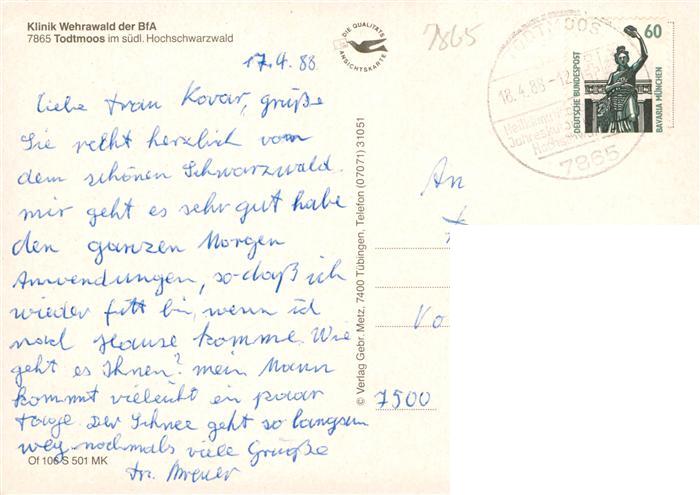 Klinik Wehrawald der BfA
7865 Todtmoos im südl. Hochschwarzwald
DIE QUALITÄTS
ANSICHTSKARTE
7865
17.4.88
Liebe Frau Kovar, grüße
Sie recht herzlich vom
dem schönen Schwarzwald.
mir geht es sehr gut habe
den ganzen Morgen
Anwendungen, so-daß ich
wieder fitt bin, wenn ich
nach Hause komme. Wie
geht es Ihnen? mein Mann
kommt vieleicht ein paar
Tage. Der Schnee geht so langsam
weg. nochmals viele Grüße
Fr. Breuer
Of 106 S 501 MK
© Verlag Gebr. Metz, 7400 Tübingen, Telefon (07071) 31051
TODTMOOS
18.4.88-12
Heilklima
Jahreskur
Hochschw
7865
60
DEUTSCHE BUNDESPOST
BAVARIA MÜNCHEN
An
Vo
7500